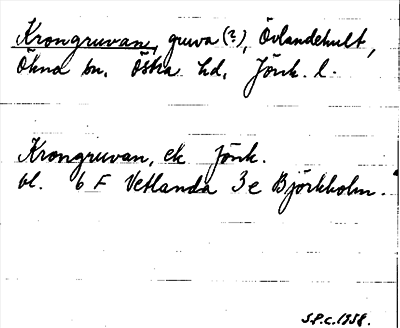 Krongruvan, gruva (?), Övlandehult,
Ökna sn. Östra hd. Jönk. l.
Krongruvan, ek Jönk.
bl. 6 F Vetlanda 3 e Björkholm.
S.P.C. 1958.